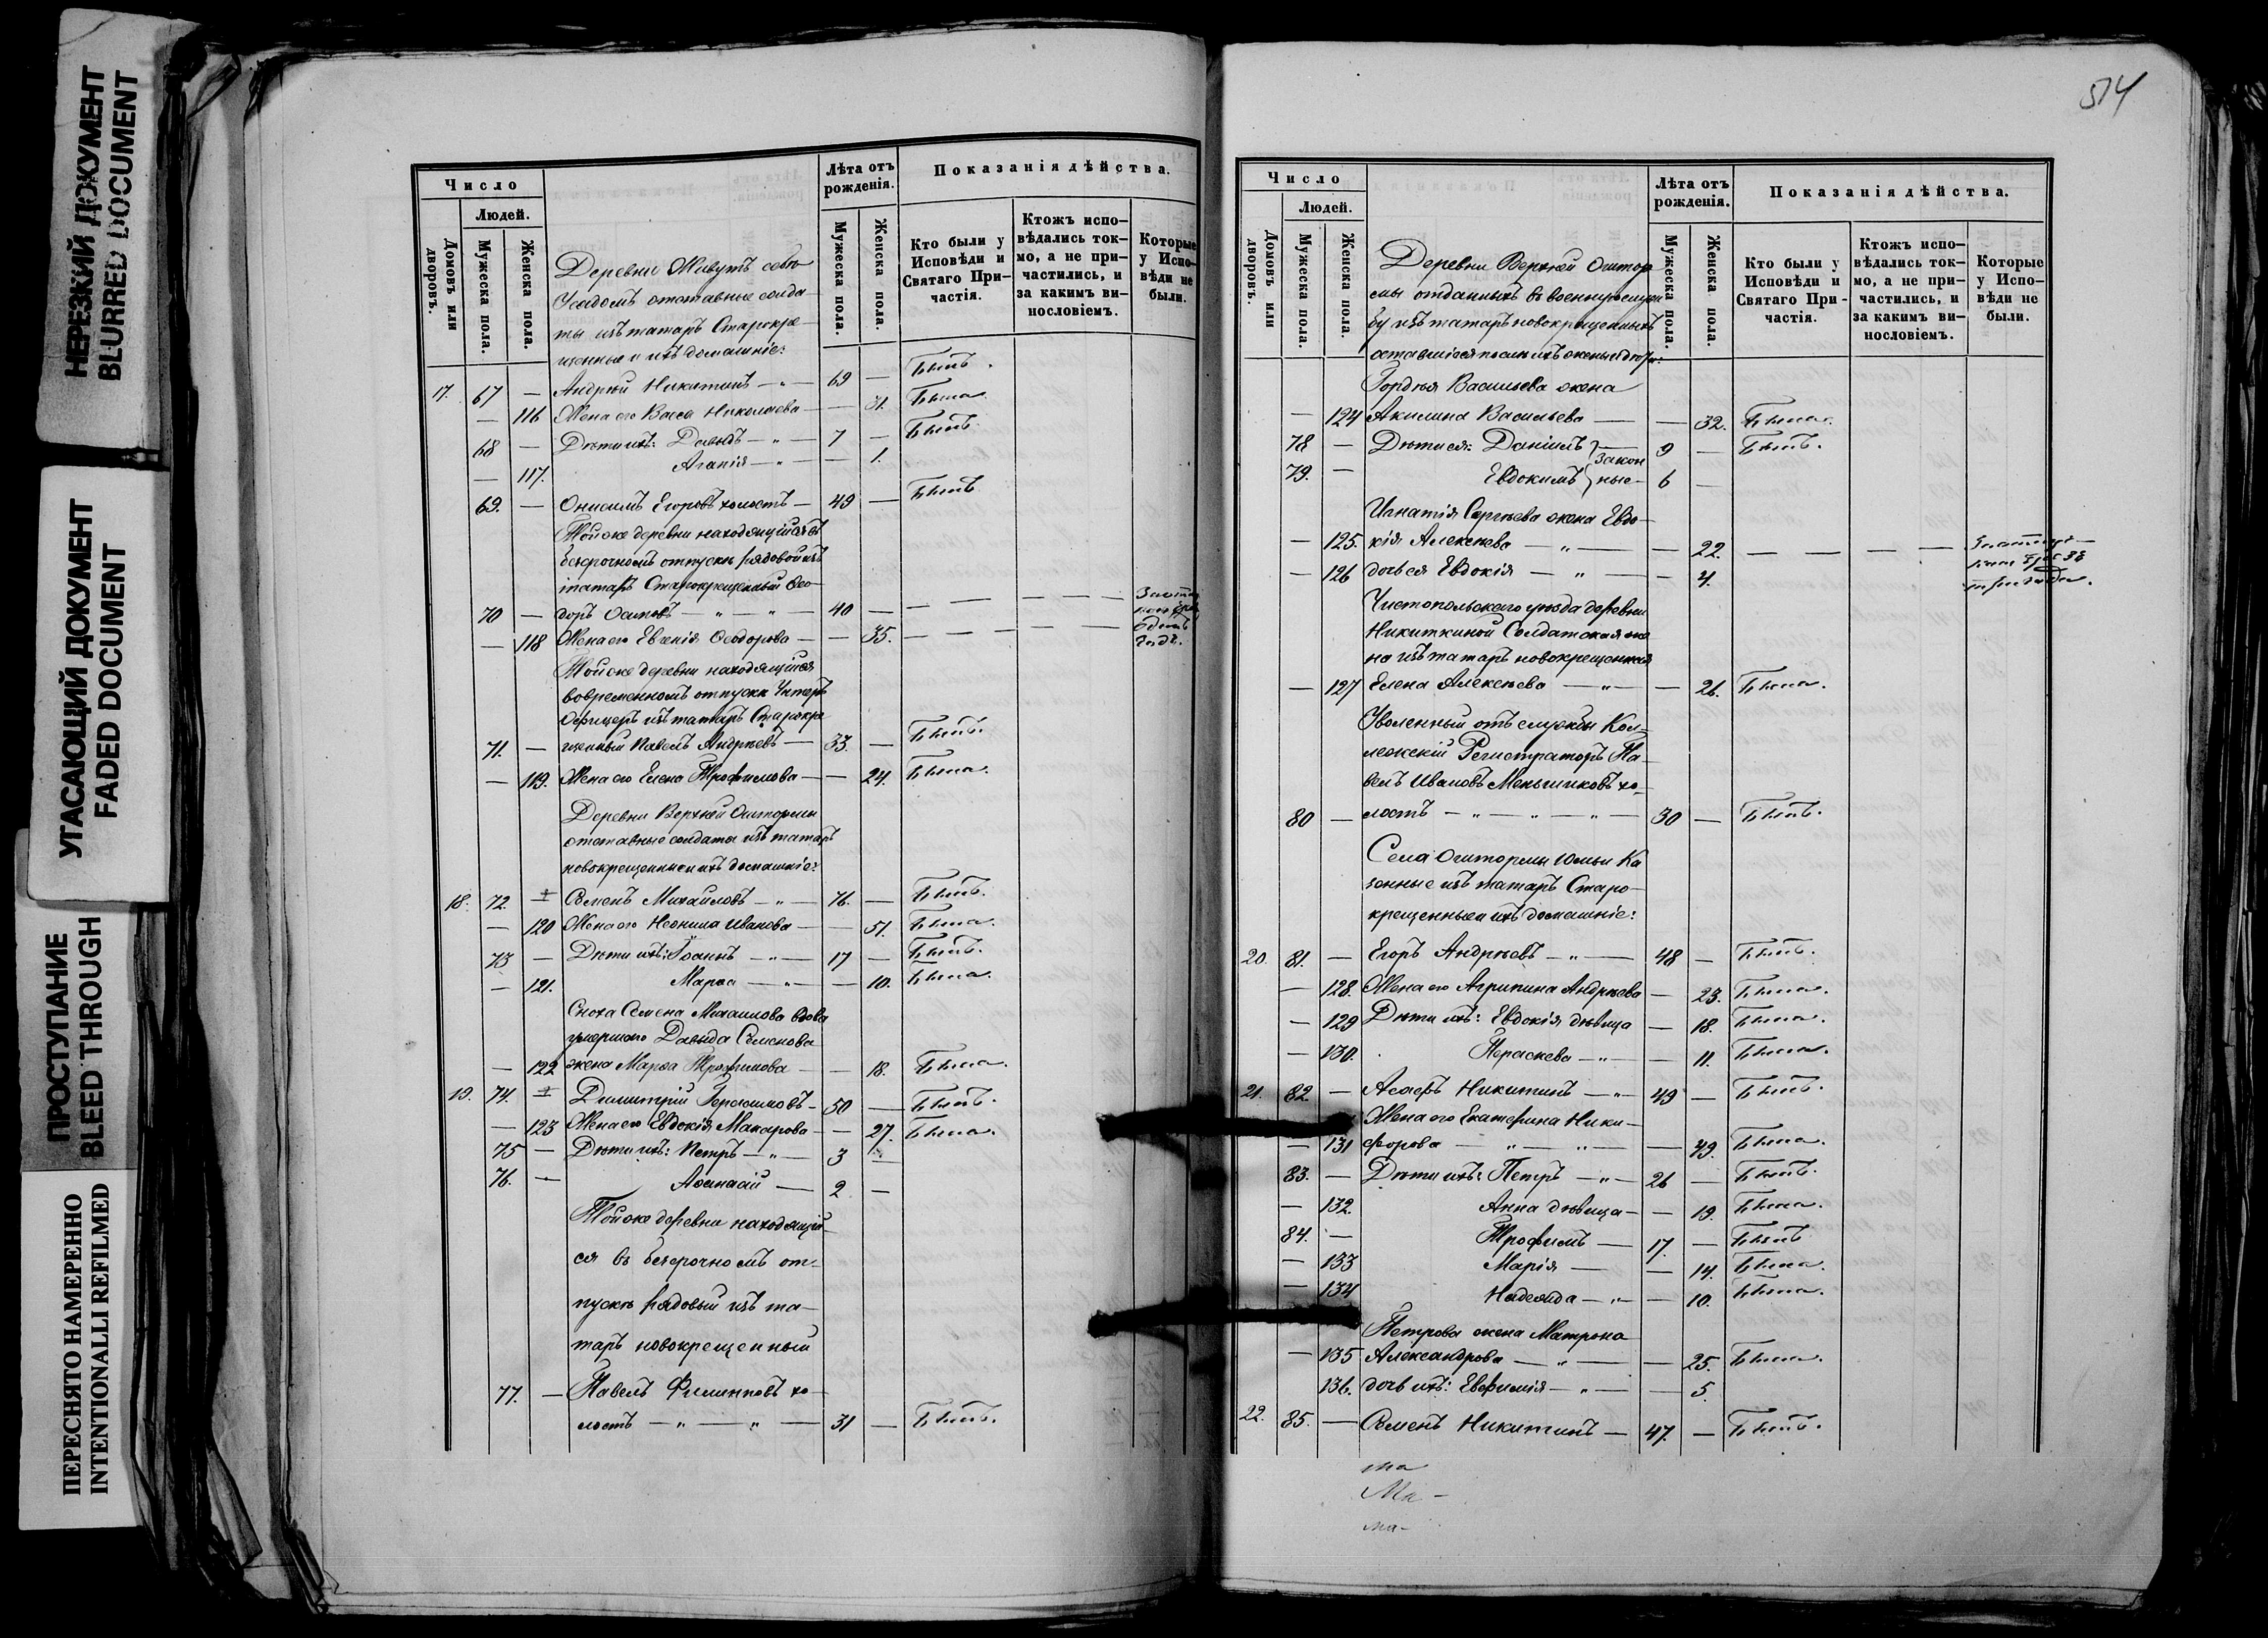 НЕРЕЗКИЙ ДОКУМЕНТ
BLURRED DOCUMENT
УГАСАЮЩИЙ ДОКУМЕНТ
FADED DOCUMENT
ПРОСТУПАНИЕ
BLEED THROUGH
ПЕРЕСНЯТО НАМЕРЕННО
INTENTIONALLI REFILMED
Число
Людей.
Домовъ или дворовъ.
Мужеска пола.
Женска пола.
Лѣта отъ рожденія.
Мужеска пола.
Женска пола.
Показанія дѣйства.
Кто были у Исповѣди и Святаго Причастія.
Ктожъ исповѣдались токмо, а не причастились, и за какимъ винословіемъ.
Которые у Исповѣди не были.
Деревни Живутъ
отставные солда-
ты изъ татаръ Старокре-
щенные и ихъ домашніе:
17. 67 — Андрей Никитинъ — „ — 69 — Былъ.
— 116 Жена его Васса Николаева — — 31. Была
68 — Дѣти ихъ: Давыдъ — „ — 7 — Былъ
— 117. Агапія — „ — — 1.
69. — Онисимъ Егоровъ холостъ — 49 — Былъ
Той же деревни находящійся въ
безсрочномъ отпускѣ рядовой изъ
татаръ Старокрещеный Ѳео-
70 — доръ Осиповъ — „ — „ — 40 — — — — — —
— 118 Жена его Евгенія Ѳеодорова — — 35. — — — — — одинъ годъ.
Той же деревни находящійся
во временномъ отпускѣ Унтеръ
Офицеръ изъ татаръ Старокре
71. — щеный Павелъ Андреевъ — 33. — Былъ.
— 119. Жена его Елена Трофимова — — 24. Была.
Деревни Верхней Оштормы
отставные солдаты изъ татаръ
новокрещенныи ихъ домашніе:
18. 72. ± Семенъ Михайловъ — „ — 76. — Былъ.
— 120 Жена его Неонила Иванова — — 51. Была.
73 — Дѣти ихъ: Іоаннъ — „ — 17 — Былъ.
— 121. Марѳа — „ — — 10. Была.
Сноха Семена Михаилова вдова
умершаго Давыда Семенова
— 122 жена Марѳа Трофимова — — 18. Была.
19. 74. ± Димитрій Герасимовъ — 50 — Былъ.
— 123 Жена его Евдокія Макарова — — 27. Была.
75 — Дѣти ихъ: Петръ — „ — 3 —
76. — Аѳанасій — 2 —
Той же деревни находящій-
ся въ безсрочномъ от-
пускѣ рядовый изъ та-
таръ новокрещенный
77. — Павелъ Филиповъ хо-
лостъ — „ — „ — 31 — Былъ.
514
Число
Людей.
Домовъ или дворовъ.
Мужеска пола.
Женска пола.
Лѣта отъ рожденія.
Мужеска пола.
Женска пола.
Показанія дѣйства.
Кто были у Исповѣди и Святаго Причастія.
Ктожъ исповѣдались токмо, а не причастились, и за какимъ винословіемъ.
Которые у Исповѣди не были.
Деревни Верхней Оштор
мы отданныхъ въ военную служ
бу изъ татаръ новокрещенныхъ
оставшіеся послѣ ихъ жены и дѣти:
Гордѣя Васильева жена
— 124 Акилина Васильева — — 32. Была.
78 — Дѣти ея: Даніилъ } — 9 — Былъ.
закон
79. — Евдокимъ } ные — 6 —
Игнатія Сергѣева жена Евдо-
— 125. кія Алексѣева — „ — — 22. — — — —
— 126 дочь ея Евдокія — „ — — 4.
Чистопольского уѣзда деревни
Никиткиной Солдатская же
на изъ татаръ новокрещенная
— 127 Елена Алексѣева — „ — — 26. Была.
Уволенный отъ службы Кол-
лежскій Регистраторъ Па-
велъ Ивановъ Меньшиковъ хо-
80 — лостъ — „ — „ — „ — 30 — Былъ.
Села Оштормы Юмьи Ка
зенные изъ татаръ Старо-
крещенныеи ихъ домашніе:
20. 81. — Егоръ Андреевъ — „ — 48 — Былъ.
— 128. Жена его Агрипина Андреева — 23. Была.
— 129 Дѣти ихъ: Евдокія дѣвица — 18. Была.
— 130. Параскева — „ — — 11. Была.
21. 82. — Асафъ Никитинъ — „ — 49 — Былъ.
Жена его Екатерина Ники-
— 131 форова — „ — „ — — 49. Была.
83. — Дѣти ихъ: Петръ — „ — 26 — Былъ.
— 132. Анна дѣвица — — 19. Была.
84. — Трофимъ — 17. — Былъ
— 133 Марія — — 14. Была.
— 134 Надежда — „ — — 10. Была.
Петрова жена Матрона
— 135 Александрова — „ — — 25. Была.
136. дочь ихъ: Евфимія — „ — — 5.
22. 85. — Семенъ Никитинъ — 47. — Былъ.